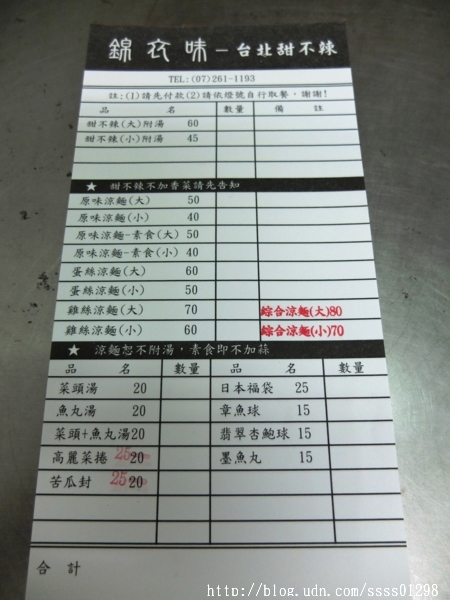 錦衣味－台北甜不辣
TEL:(07)261-1193
註:(1)請先付款(2)請依燈號自行取餐，謝謝!
品 名 數量 備 註
甜不辣(大)附湯 60
甜不辣(小)附湯 45
★ 甜不辣不加香菜請先告知
原味涼麵(大) 50
原味涼麵(小) 40
原味涼麵-素食(大) 50
原味涼麵-素食(小) 40
蛋絲涼麵(大) 60
蛋絲涼麵(小) 50
雞絲涼麵(大) 70 綜合涼麵(大)80
雞絲涼麵(小) 60 綜合涼麵(小)70
★ 涼麵恕不附湯，素食即不加蒜
品 名 數量 品 名 數量
菜頭湯 20 日本福袋 25
魚丸湯 20 章魚球 15
菜頭+魚丸湯20 翡翠杏鮑球 15
高麗菜捲 20 25 墨魚丸 15
苦瓜封 20 25
合 計
http://blog.udn.com/ssss01298